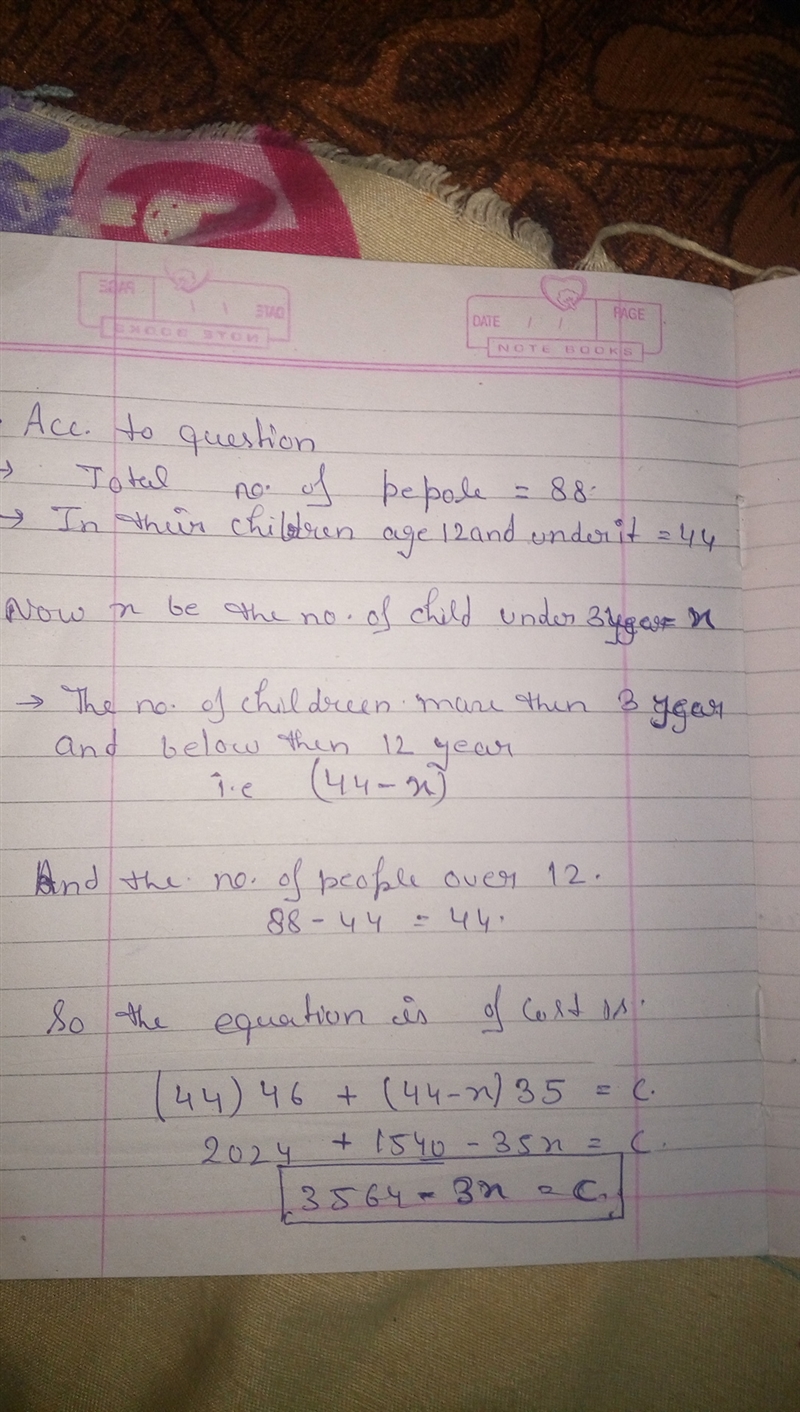 DATE / / PAGE
NOTE BOOKS
Acc. to question
→ Total no. of pepole = 88.
→ In their children age 12 and under it = 44
Now x be the no. of child under 3 ygear = x
→ The no. of childreen more then 3 ygear
and below then 12 year
i.e (44-x)
And the no. of people over 12.
88 - 44 = 44.
So the equation is of cost is.
(44) 46 + (44-x) 35 = C.
2024 + 1540 - 35x = C.
3564 - 3x = C.